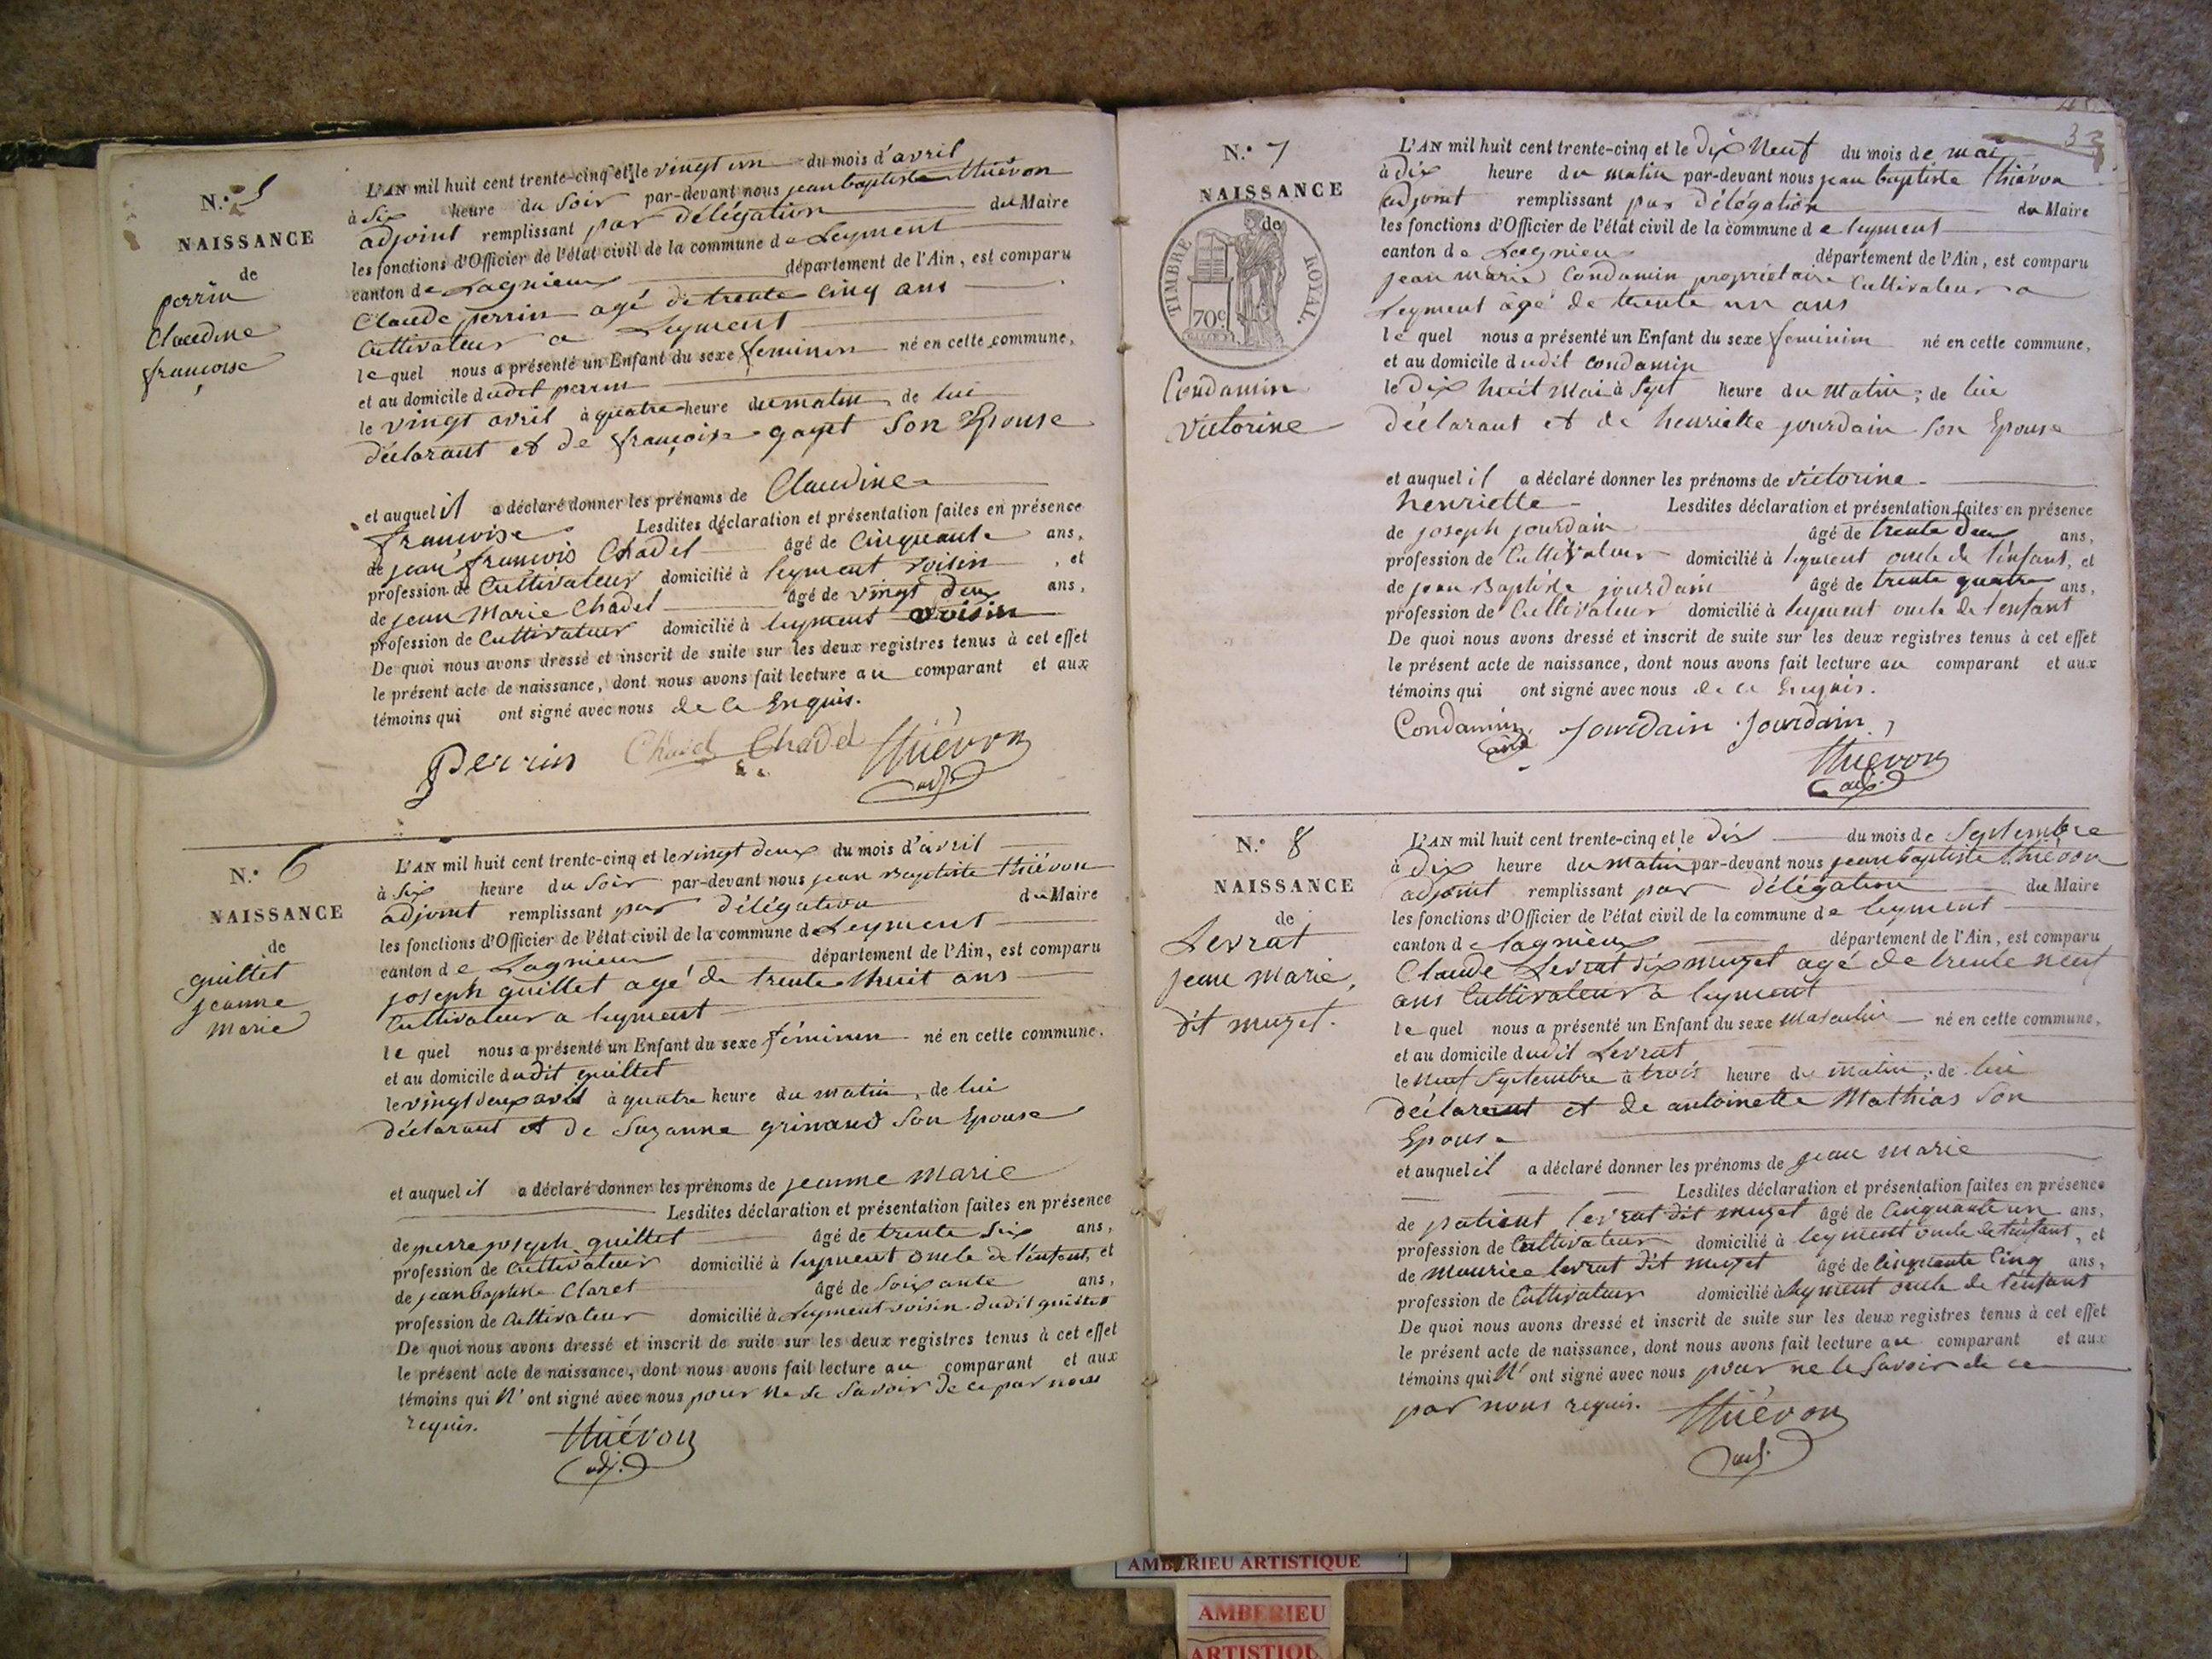 N.° 5
NAISSANCE
de
perrin
Claudine
françoise
L'AN mil huit cent trente-cinq et le vingt un du mois d'avril
à Six heure du Soir par-devant nous jean baptiste thiévon
adjoint remplissant par délégation du Maire
les fonctions d'Officier de l'état civil de la commune de Leyment
canton de Lagnieux département de l'Ain, est comparu
Claude perrin agé de trente cinq ans
Cultivateur a Leyment
le quel nous a présenté un Enfant du sexe feminin né en cette commune,
et au domicile dudit perrin
le vingt avril à quatre heure du matin, de lui
déclarant et de françoise gayet Son Epouse
et auquel il a déclaré donner les prénoms de Claudine
françoise Lesdites déclaration et présentation faites en présence
de jean françois Chadel âgé de Cinquante ans,
profession de Cultivateur domicilié à leyment voisin, et
de jean Marie Chadel âgé de vingt deux ans,
profession de Cultivateur domicilié à leyment voisin
De quoi nous avons dressé et inscrit de suite sur les deux registres tenus à cet effet
le présent acte de naissance, dont nous avons fait lecture au comparant et aux
témoins qui ont signé avec nous de ce Enquis.
Perrin Chadel Chadel thiévon
adj.
N.° 6
NAISSANCE
de
guillet
jeanne
marie
L'AN mil huit cent trente-cinq et le vingt deux du mois d'avril
à Six heure du Soir par-devant nous jean Baptiste thiévon
adjoint remplissant par délégation du Maire
les fonctions d'Officier de l'état civil de la commune de Leyment
canton de Lagnieux département de l'Ain, est comparu
joseph guillet agé de trente huit ans
Cultivateur a leyment
le quel nous a présenté un Enfant du sexe féminin né en cette commune.
et au domicile dudit guillet
le vingt deux avril à quatre heure du matin, de lui
déclarant et de Suzanne grinand Son Epouse
et auquel il a déclaré donner les prénoms de jeanne marie
Lesdites déclaration et présentation faites en présence
de pierre joseph guillet âgé de trente Six ans,
profession de Cultivateur domicilié à leyment oncle de l'enfant, et
de jean baptiste Claret âgé de Soixante ans,
profession de Cultivateur domicilié à Leyment voisin dudit guillet
De quoi nous avons dressé et inscrit de suite sur les deux registres tenus à cet effet
le présent acte de naissance, dont nous avons fait lecture au comparant et aux
témoins qui N'ont signé avec nous pour ne le Savoir de ce par nous
requis.
thiévon
adj.
N.° 7
NAISSANCE
de
TIMBRE ROYAL.
70c
Condamin
Victorine
L'AN mil huit cent trente-cinq et le dix Neuf du mois de mai
à dix heure du matin par-devant nous jean baptiste thiévon
adjoint remplissant par délégation du Maire
les fonctions d'Officier de l'état civil de la commune de leyment
canton de Lagnieu département de l'Ain, est comparu
jean marie Condamin propriétaire Cultivateur a
Leyment agé de trente un ans
le quel nous a présenté un Enfant du sexe feminim né en cette commune,
et au domicile dudit condamin
le dix huit mai à Sept heure du Matin, de lui
déclarant et de henriette jourdain Son Epouse
et auquel il a déclaré donner les prénoms de victorine
henriette Lesdites déclaration et présentation faites en présence
de joseph jourdain âgé de trente deux ans,
profession de Cultivateur domicilié à leyment oncle de l'enfant, et
de jean Baptiste jourdain âgé de trente quatre ans,
profession de Cultivateur domicilié à leyment oncle de l'enfant
De quoi nous avons dressé et inscrit de suite sur les deux registres tenus à cet effet
le présent acte de naissance, dont nous avons fait lecture au comparant et aux
témoins qui ont signé avec nous de ce Enquis.
Condamin Jourdain Jourdain
thiévon
adj.
N.° 8
NAISSANCE
de
Levrat
jean marie,
dit muzet.
L'AN mil huit cent trente-cinq et le dix du mois de Septembre
à dix heure du matin par-devant nous jean baptiste thiévon
adjoint remplissant par délégation du Maire
les fonctions d'Officier de l'état civil de la commune de leyment
canton de Lagnieux département de l'Ain, est comparu
Claude Levrat dix muzet agé de trente neuf
ans Cultivateur a leyment
le quel nous a présenté un Enfant du sexe Masculin né en cette commune,
et au domicile dudit Levrat
le neuf Septembre à trois heure du matin, de lui
déclarant et de antoinette Mathias Son
Epouse
et auquel il a déclaré donner les prénoms de jean marie
Lesdites déclaration et présentation faites en présence
de patient levrat dit muzet âgé de Cinquante un ans,
profession de Cultivateur domicilié à leyment oncle de l'enfant, et
de maurice levrat dit muzet âgé de Cinquante Cinq ans,
profession de Cultivateur domicilié à leyment oncle de l'enfant
De quoi nous avons dressé et inscrit de suite sur les deux registres tenus à cet effet
le présent acte de naissance, dont nous avons fait lecture au comparant et aux
témoins qui N'ont signé avec nous pour ne le Savoir de ce
par nous requis.
thiévon
adj.
AMBERIEU ARTISTIQUE
AMBERIEU
ARTISTIQU